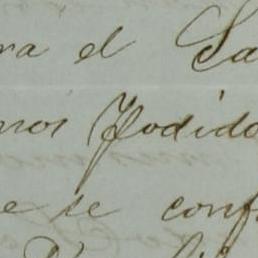 ra el Sa
mos Podido
e se conf